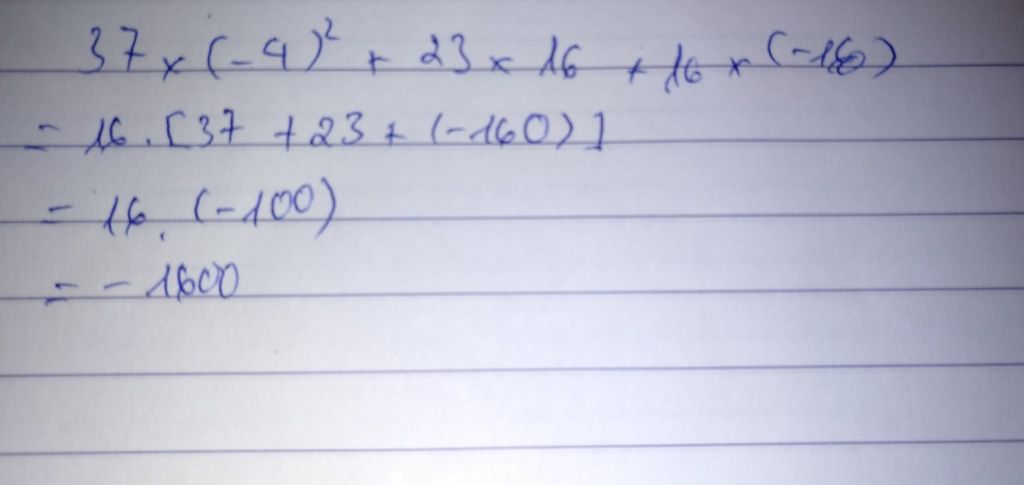 37 × (-4)² + 23 × 16 + 16 × (-160)
= 16. [37 + 23 + (-160)]
= 16. (-100)
= -1600